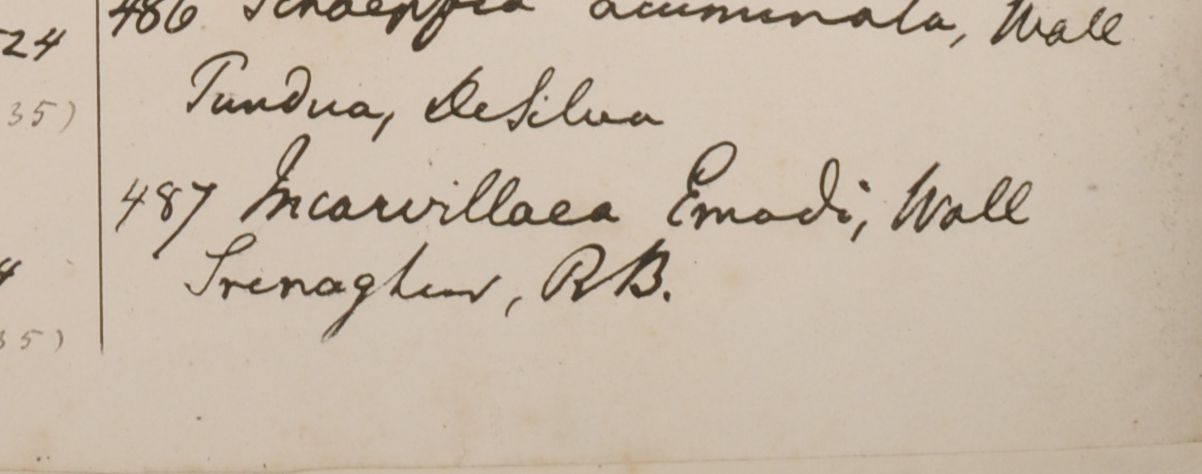 486 Schoepfia acuminata, Wall
24
Pundua, DeSilva
35)
487 Incarvillaea Emodi, Wall
Srenaghur, RB.
4
35)